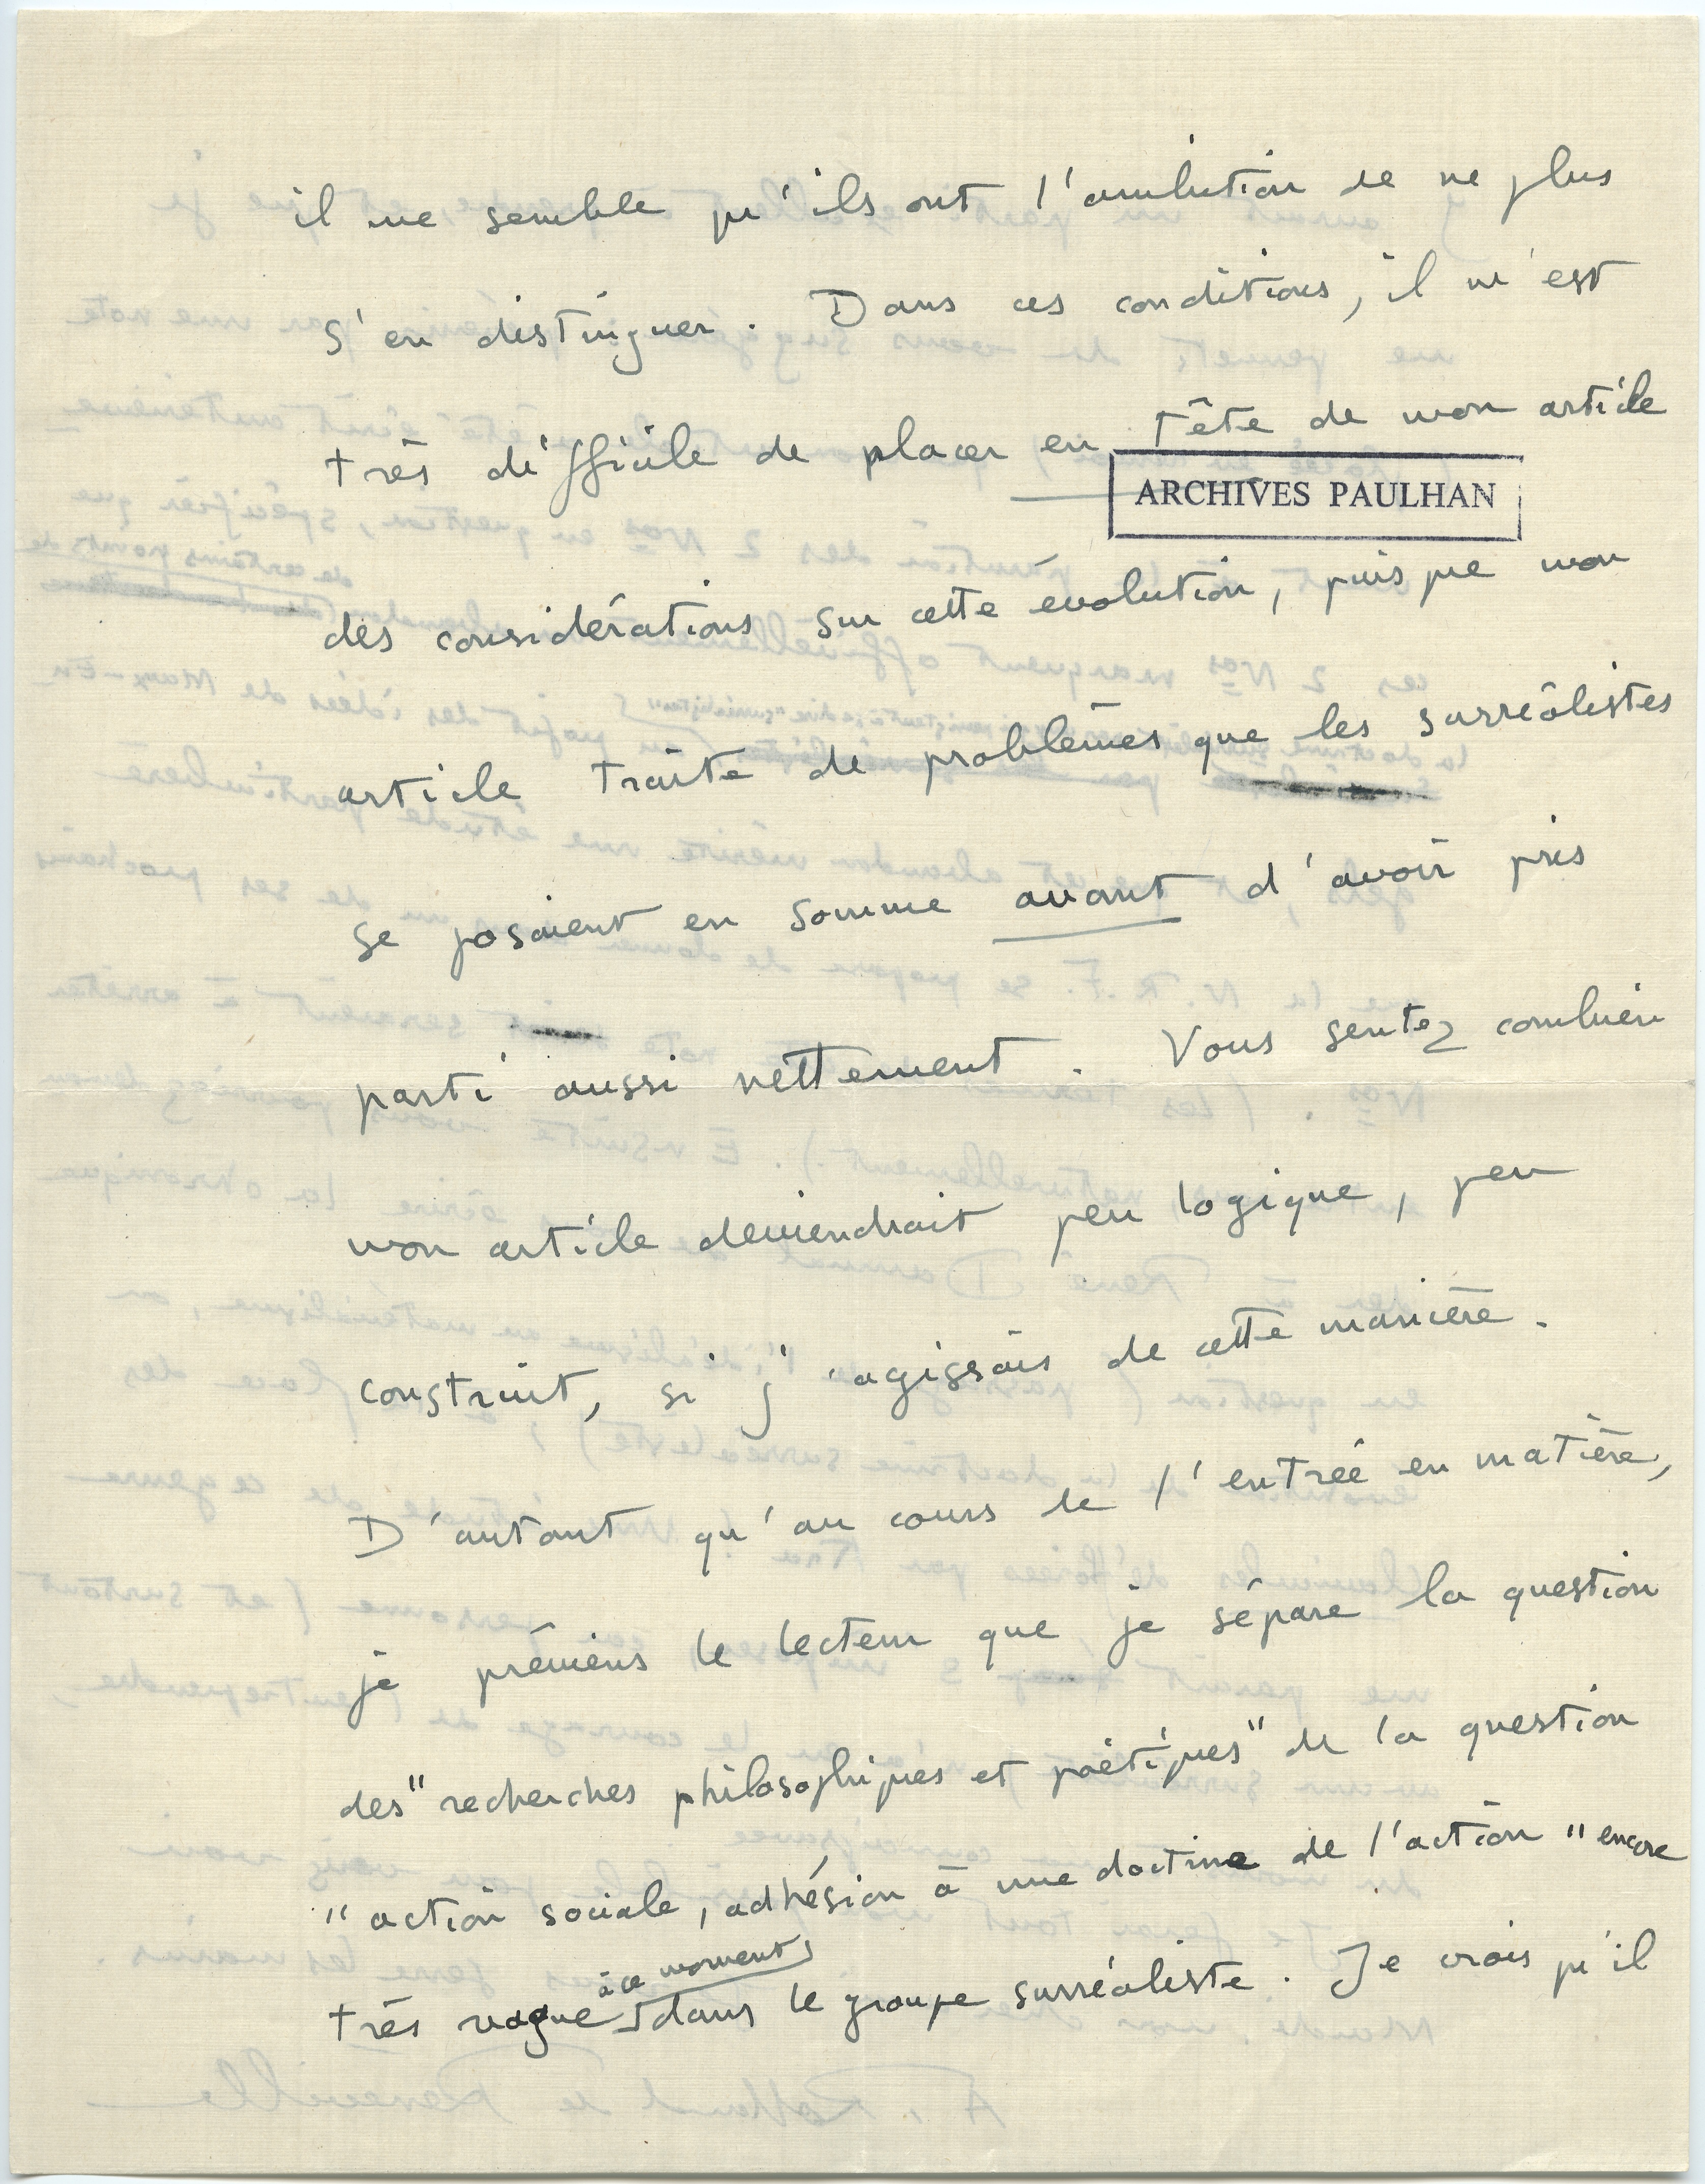 il me semble qu'ils ont l'ambition de ne plus
s'en distinguer. Dans ces conditions, il m'est
très difficile de placer en tête de mon article
ARCHIVES PAULHAN
des considérations sur cette évolution, puisque mon
article traite de problèmes que les surréalistes
se posaient en somme avant d'avoir pris
parti aussi nettement. Vous sentez combien
mon article deviendrait peu logique, peu
construit, si j'agissais de cette manière.
D'autant qu'au cours de l'entrée en matière,
je préviens le lecteur que je sépare la question
des "recherches philosophiques et poétiques" de la question
"action sociale, adhésion à une doctrine de l'action" encore
à ce moment
très vague dans le groupe surréaliste. Je crois qu'il